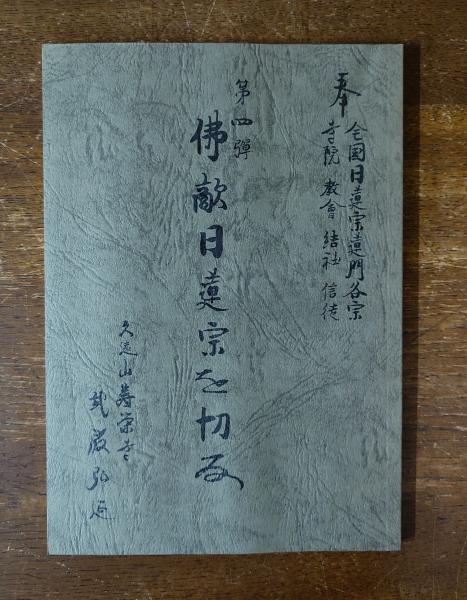 奉
全国日蓮宗蓮門各宗
寺院 教會 結社 信徒
第四弾
佛敵日蓮宗を切る
久遠山壽栄寺